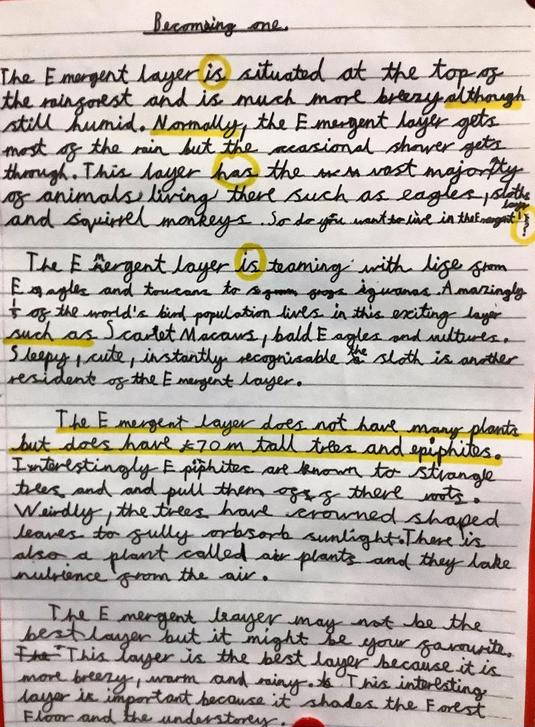 Becomeing one.
The Emergent layer is situated at the top of
the rainforest and is much more breezy although
still humid. Normally, the Emergent layer gets
most of the rain but the occasional shower gets
through. This layer has the vast majority
of animals living there such as eagles, sloths
and squirrel monkeys. So do you want to live in the Emergent layer?
The Emergent layer is teaming with life from
Eagles and toucans to iguanas. Amazingly
of the world's bird population lives in this exciting layer
such as Scarlet Macaws, bald Eagles and vultures.
Sleepy, cute, instantly recognisable the sloth is another
resident of the Emergent layer.
The Emergent layer does not have many plants
but does have 70m tall trees and epiphites.
Interestingly Epiphites are known to strangle
trees and and pull them off of there roots.
Weirdly, the trees have crowned shaped
leaves to fully orbsorb sunlight. There is
also a plant called air plants and they take
nutrience from the air.
The Emergent layer may not be the
best layer but it might be your favourite.
This layer is the best layer because it is
more breezy, warm and rainy. This interesting
layer is important because it shades the Forest
Floor and the understorey.